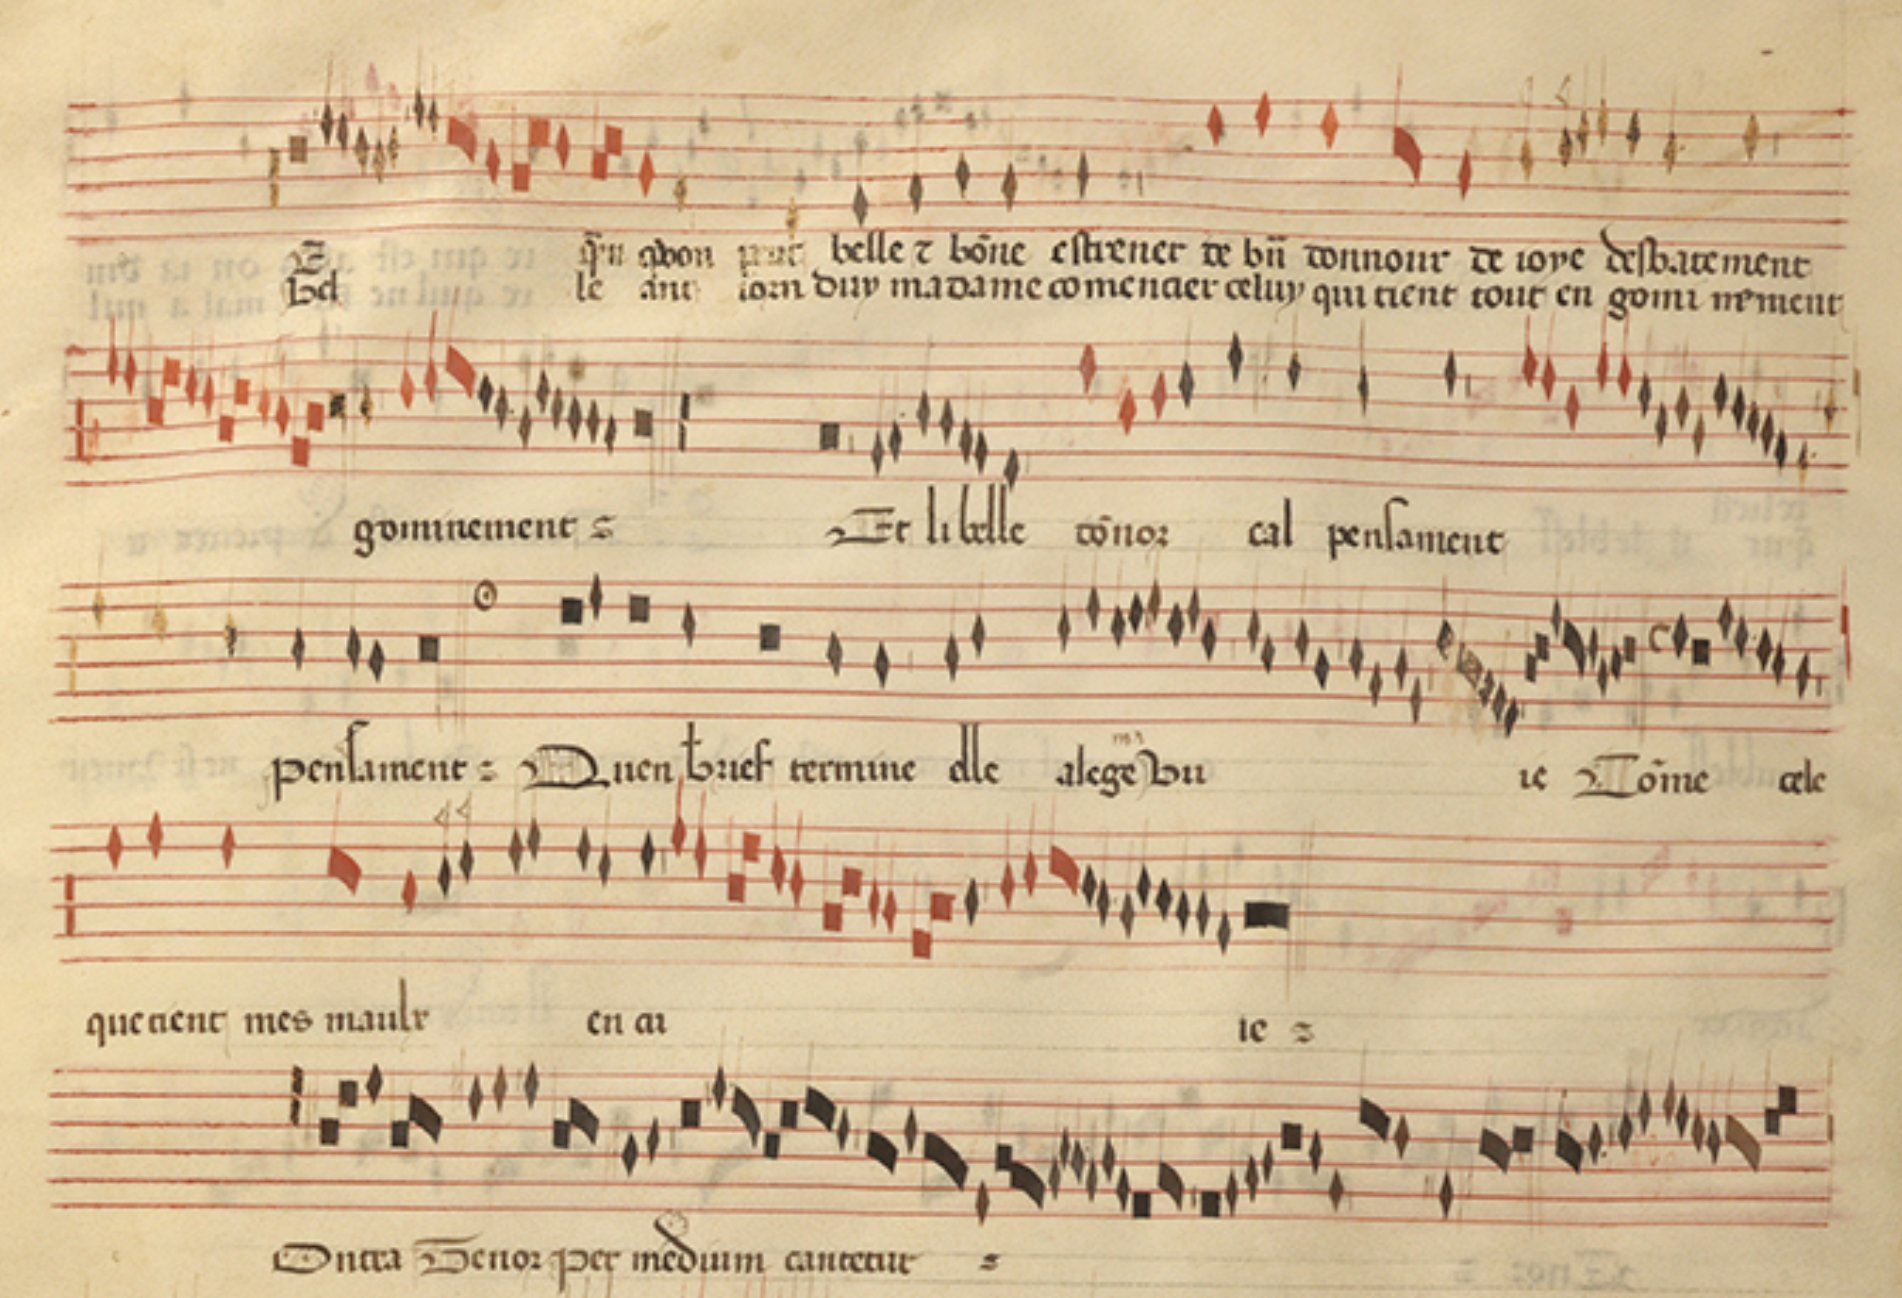 qñ qvon puit belle ⁊ bōne estrener te bñ tonnour de ioye desbatement
Bel le ant iorn duy ma dame comencier celuy qui tient tout en gouvernement
gouvinement
Et li belle tōnor cal pensament
pensament Quen brief termine elle alege ie Tōme cele
que tient mes maulx en ai ie
Ontra Tenor per medium cantetur